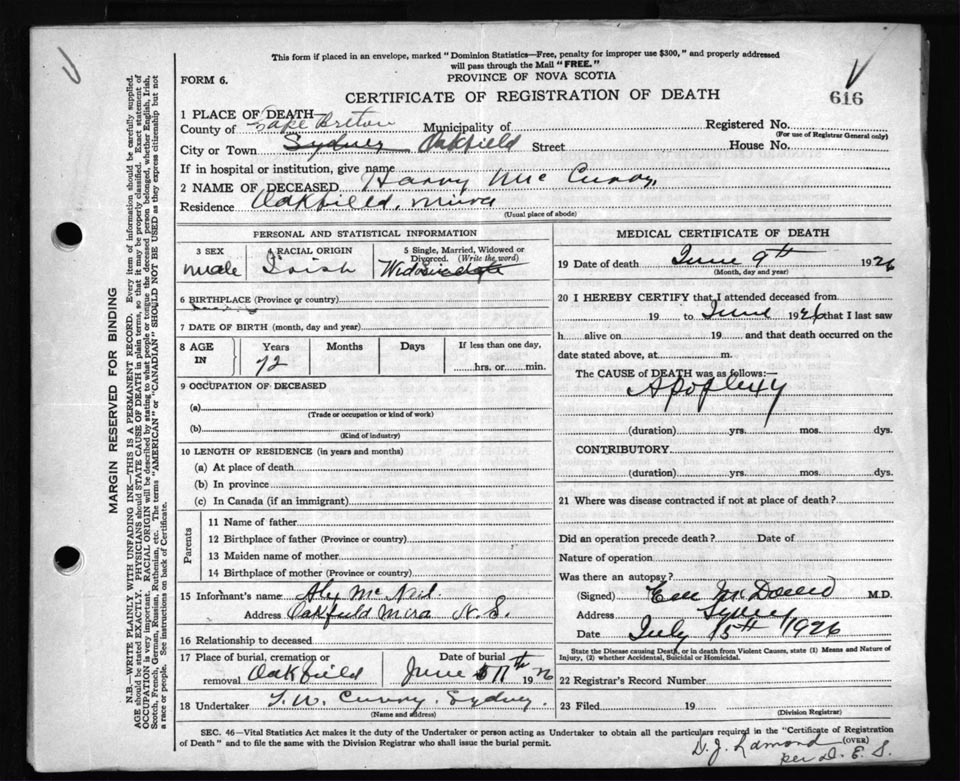 This form if placed in an envelope, marked "Dominion Statistics—Free, penalty for improper use $300," and properly addressed
will pass through the Mail "FREE."
FORM 6.
PROVINCE OF NOVA SCOTIA
616
CERTIFICATE OF REGISTRATION OF DEATH
1 PLACE OF DEATH
County of Cape Breton Municipality of Registered No.
(For use of Registrar General only)
City or Town Sydney Oakfield Street House No.
If in hospital or institution, give name
2 NAME OF DECEASED Harry Mc Curry
Residence Oakfield, Mira
(Usual place of abode)
PERSONAL AND STATISTICAL INFORMATION
3 SEX 4 RACIAL ORIGIN 5 Single, Married, Widowed or
Divorced. (Write the word)
male Irish
6 BIRTHPLACE (Province or country)
7 DATE OF BIRTH (month, day and year)
8 AGE IN Years Months Days If less than one day,
72 hrs. or min.
9 OCCUPATION OF DECEASED
(a)
(Trade or occupation or kind of work)
(b)
(Kind of industry)
10 LENGTH OF RESIDENCE (in years and months)
(a) At place of death
(b) In province
(c) In Canada (if an immigrant)
Parents
11 Name of father
12 Birthplace of father (Province or country)
13 Maiden name of mother
14 Birthplace of mother (Province or country)
15 Informant's name Alex Mc Neil
Address Oakfield Mira N. S.
16 Relationship to deceased
17 Place of burial, cremation or Date of burial
removal Oakfield June 11th 1926
18 Undertaker T. W. Curry, Sydney.
(Name and address)
MEDICAL CERTIFICATE OF DEATH
19 Date of death June 9th 1926
(Month, day and year)
20 I HEREBY CERTIFY that I attended deceased from
19 to June 1926 that I last saw
h alive on 19 and that death occurred on the
date stated above, at m.
The CAUSE of DEATH was as follows:—
Apoplexy
(duration) yrs. mos. dys.
CONTRIBUTORY
(duration) yrs. mos. dys.
21 Where was disease contracted if not at place of death?
Did an operation precede death? Date of
Nature of operation
Was there an autopsy?
(Signed) M.D.
Address Sydney
Date July 15th 1926
State the Disease causing Death, or in death from Violent Causes, state (1) Means and Nature of
Injury, (2) whether Accidental, Suicidal or Homicidal.
22 Registrar's Record Number
23 Filed 19
(Division Registrar)
SEC. 46—Vital Statistics Act makes it the duty of the Undertaker or person acting as Undertaker to obtain all the particulars required in the "Certificate of Registration
of Death" and to file the same with the Division Registrar who shall issue the burial permit.
(OVER)
D. J.
per D. E. S.
MARGIN RESERVED FOR BINDING
N.B.—WRITE PLAINLY WITH UNFADING INK—THIS IS A PERMANENT RECORD. Every item of information should be carefully supplied.
AGE should be stated EXACTLY. PHYSICIANS should STATE CAUSE OF DEATH in plain terms, so that it may be properly classified. Exact statement of
OCCUPATION is very important. RACIAL ORIGIN will be described by stating to what people or tongue the deceased person belonged, whether English, Irish,
Scotch, French, German, Russian, Ruthenian, etc. The terms "AMERICAN" or "CANADIAN" SHOULD NOT BE USED as they express citizenship but not
a race or people. See instructions on back of Certificate.